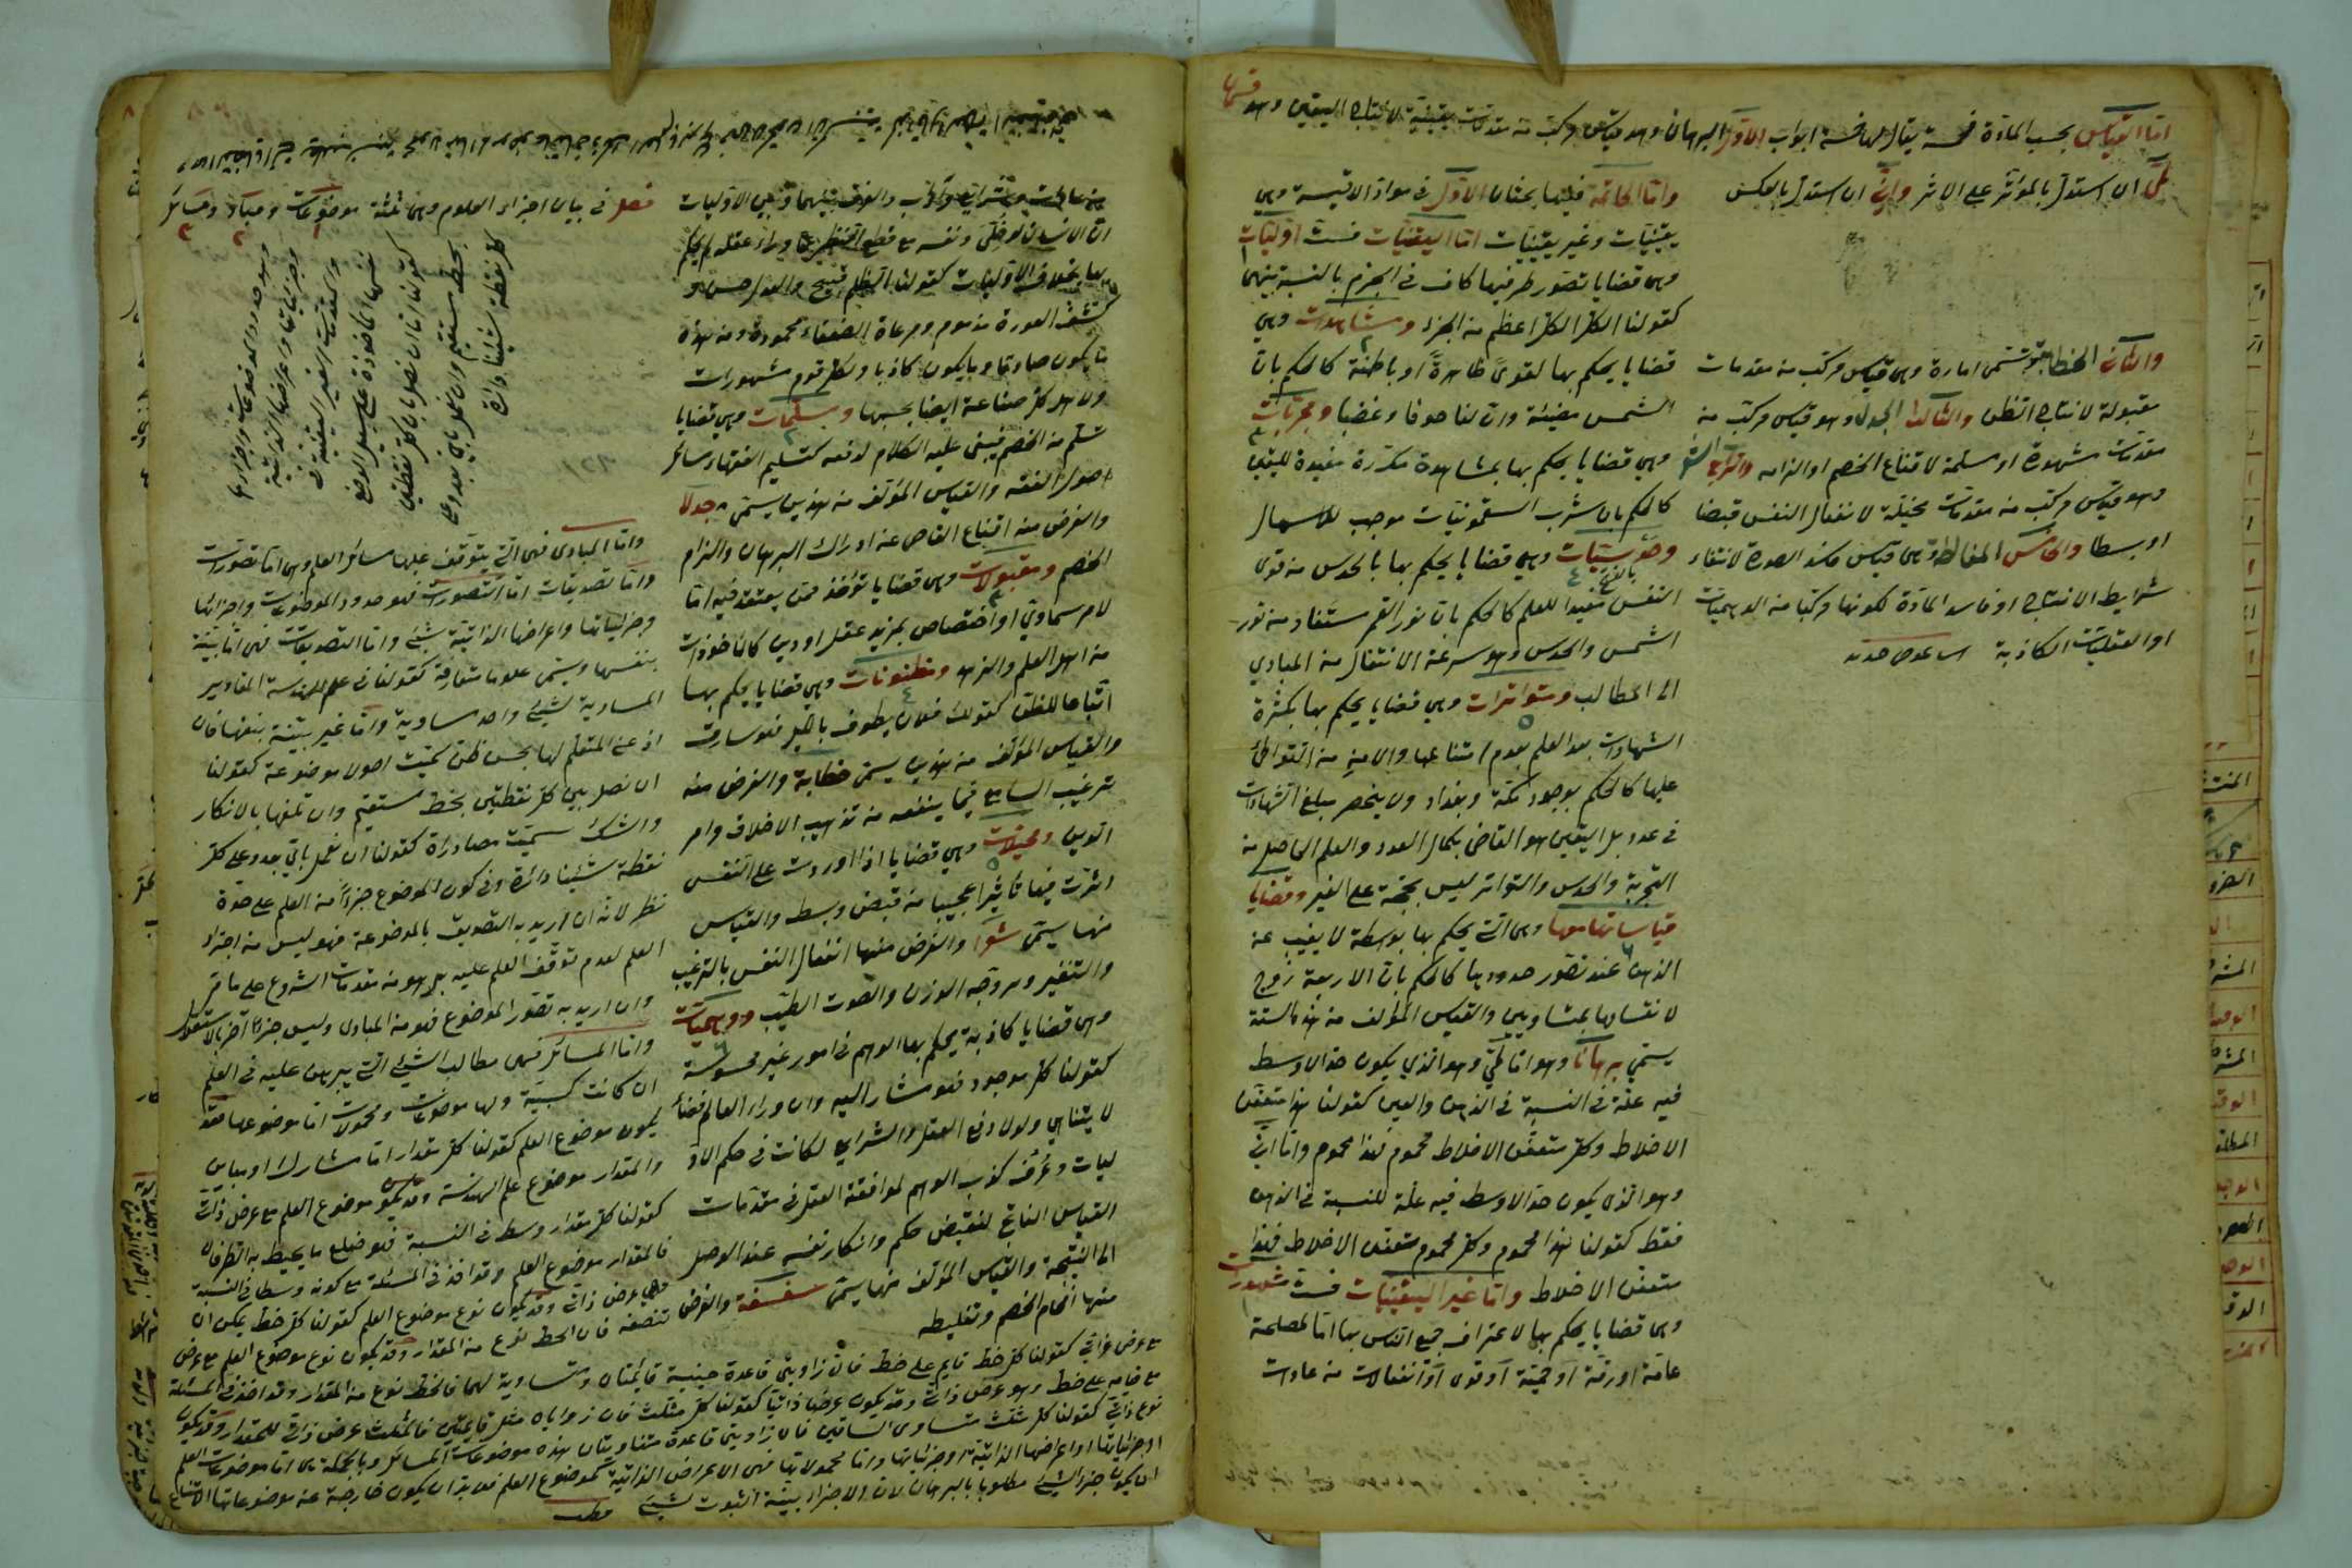 اما القياس بحسب المادة فخمسة يقال لها خمسة ابواب الاول البرهان وهو قياس مركب من مقدمات يقينية لانتاج اليقين وهو قسمان
لمّي ان استدل بالمؤثر على الاثر وانّي ان استدل بالعكس
والثاني الخطابة وتسمى امارة وهى قياس مركب من مقدمات
مقبولة لانتاج الظن والثالث الجدل وهو قياس مركب من
مقدمات مشهورة او مسلمة لاقناع الخصم او الزامه والرابع الشعر
وهو قياس مركب من مقدمات مخيلة لانفعال النفس قبضا
او بسطا والخامس المغالطة وهى قياس فاسد الصورة لانتفاء
شرايط الانتاج او فاسد المادة لكونها مركبا من الوهميات
او العقليات الكاذبة
واما الخاتمة ففيها بحثان الاول في مواد الاقيسة وهى
يقينيات وغير يقينيات اما اليقينيات فست اوليات
وهى قضايا تصور طرفيها كاف في الجزم بالنسبة بينهما
كقولنا الكل اعظم من الجزء ومشاهدات وهي
قضايا يحكم بها لقوى ظاهرة او باطنة كالحكم بان
الشمس مضيئة وان لنا خوفا وغضبا ومجربات
وهي قضايا يحكم بها بمشاهدة متكررة مفيدة لليقين
كالحكم بان شرب السقمونيات موجب للاسهال
وحدسيات وهي قضايا يحكم بها بالحدس من قوى
النفس مفيدا للعلم كالحكم بان نور القمر مستفاد من نور
الشمس والحدس وهو سرعة الانتقال من المبادي
الى المطالب ومتواترات وهي قضايا يحكم بها بكثرة
الشهادات بعد العلم بعدم امتناعها والامن من التواطئ
عليها كالحكم بوجود مكة وبغداد ولا ينحصر مبلغ الشهادات
في عدد بل اليقين هو القاضى بكمال العدد والعلم الحاصل من
التجربة والحدس والتواتر ليس بحجة على الغير وقضايا
قياساتها معها وهى التى يحكم بها بوسطة لا يغيب عن
الذهن عند تصور حدودها كالحكم بان الاربعة زوج
لانقسامها بمتساويين والقياس المؤلف من هذه الستة
يسمّي برهانا وهو اما لمّي وهو الذي يكون حد الاوسط
فيه علة في النسبة في الذهن والعين كقولنا هذا متعفن
الاخلاط وكل متعفن الاخلاط محموم فهذا محموم واما انّي
وهو الذى يكون حد الاوسط فيه علة للنسبة في الذهن
فقط كقولنا هذا محموم وكل محموم متعفن الاخلاط فهذا
متعفن الاخلاط واما غير اليقينيات فست مشهورات
وهى قضايا يحكم بها لاعتراف جميع الناس بها اما لمصلحة
عامة او رقة او حمية او قوى او انفعالات من عادات
ان الانسان لو خلى ونفسه مع قطع النظر عما وراء عقله لم يحكم
بها بخلاف الاوليات كقولنا الظلم قبيح والعدل حسن و
كشف العورة مذموم ومراعاة الضعفاء محمودة ومن هذه
ما يكون صادقا وما يكون كاذبا ولكل قوم مشهورات
ولاهل كل صناعة ايضا بحسبها ومسلمات وهي قضايا
تسلم من الخصم فيبنى عليه الكلام لدفعه كتسليم الفقهاء مسائل
اصول الفقه والقياس المؤلف من هذين يسمى جدلا
والغرض منه اقناع القاصر عن ادراك البرهان والزام
الخصم ومقبولات وهى قضايا تؤخذ ممن يعتقد فيه اما
لامر سماوي او اختصاص بمزيد عقل او دين كالماخوذات
من اهل العلم والزهد ومظنونات وهي قضايا يحكم بها
اتباعا للظن كقولك فلان يطوف بالليل فهو سارق
والقياس المؤلف من هذين يسمى خطابة والغرض منه
ترغيب السامع فيما ينفعه من تهذيب الاخلاق وامر
الدين ومخيلات وهي قضايا اذا اوردت على النفس
اثرت فيها تاثيرا عجيبا من قبض وبسط والقياس
منها يسمّى شعرا والغرض منها انفعال النفس بالترغيب
والتنفير ويروّجه الوزن والصوت الطيّب ووهميات
وهى قضايا كاذبة يحكم بها الوهم في امور غير محسوسة
كقولنا كل موجود فهو مشار اليه وان وراء العالم فضاء
لا يتناهي ولولا دفع العقل والشرايع لكانت في حكم الاو
ليات وعرف كذب الوهم لموافقة العقل في مقدمات
القياس الناتج لنقيض حكم وانكار نفسه عند الوصول
الى النتيجة والقياس المؤلف منها يسمى سفسطة والغرض
منها افحام الخصم وتغليطه
فصل في بيان اجزاء العلوم وهى ثلثة موضوعات ومباد ومسائل
وهى حدود الموضوعات واجزاءها
وجزئياتها واعراضها الذاتية
والمقدمات الغير البينة في
نفسها الماخوذة على سبيل الوضع
كقولنا لنا ان نصل بين كل نقطتين
بخط مستقيم وان نعمل باي بعد وعلى
كل نقطة شئنا دائرة
واما المبادى فهى التى يتوقف عليها مسائل العلم وهى اما تصورات
واما تصديقات اما التصورات فهو حدود الموضوعات واجزائها
وجزئياتها واعراضها الذاتية واما التصديقات فهى اما بينة
بنفسها ويسمى علوما متعارفة كقولنا في علم الهندسة المقادير
المساوية لشئ واحد متساوية واما غير بينة بنفسها فان
اذعن المتعلم لها بحسن ظن سميت اصول موضوعة كقولنا
ان نصل بين كل نقطتين بخط مستقيم وان تلقها بالانكار
والشك سميت مصادرة كقولنا ان نعمل باي بعد وعلى كل
نقطة شئنا دائرة وفي كون الموضوع جزءا من العلم على حدة
نظر لانه ان اريد به التصديق بالموضوعة فهو ليس من اجزاء
العلم لعدم توقف العلم عليه بل هو من مقدمات الشروع على ما مر
وان اريد به تصور الموضوع فهو من المبادى وليس جزءا آخر بالاستقلال
واما المسائل فهى مطالب الشئ التى يبرهن عليه في العلم
ان كانت كسبية ولها موضوعات ومحمولات اما موضوعها فقد
يكون موضوع العلم كقولنا كل مقدار اما مشارك او مباين
والمقدار موضوع علم الهندسة وقد يكون موضوع العلم مع عرض ذاتي
كقولنا كل مقدار وسط في النسبة فهو ضلع ما يحيط به الطرفان
فالمقدار موضوع العلم وقد اخذ في المسئلة مع كونه وسطا في النسبة
وهي عرض ذاتي وقد يكون نوع موضوع العلم كقولنا كل خط يمكن ان
تنصفه فان الخط نوع من المقدار وقد يكون نوع موضوع العلم مع عرض
مع عرض ذاتي كقولنا كل خط قايم على خط فان زاويتى قاعدة جنبية قايمتان ومتساوية لهما فالخط نوع من المقدار وقد اخذ في المسئلة
مع قيامه على خط وهو عرض ذاتي وقد يكون عرضا ذاتيا كقولنا كل مثلث فان زواياه مثل قايمتين فالمثلث عرض ذاتي للمقدار وقد يكون
نوع ذاتي كقولنا كل مثلث متساوى الساقين فان زاويتى قاعدة متساويتان هذه موضوعات المسائل وبالجملة هى اما موضوعات العلم
او جزئياتها او اعراضها الذاتية او جزئياتها واما محمولاتها فهى الاعراض الذاتية لموضوع العلم فلابد ان يكون خارجة عن موضوعاتها لامتناع
ان يكون جزء الشئ مطلوبا بالبرهان لان الاجزاء بينة الثبوت للشئ